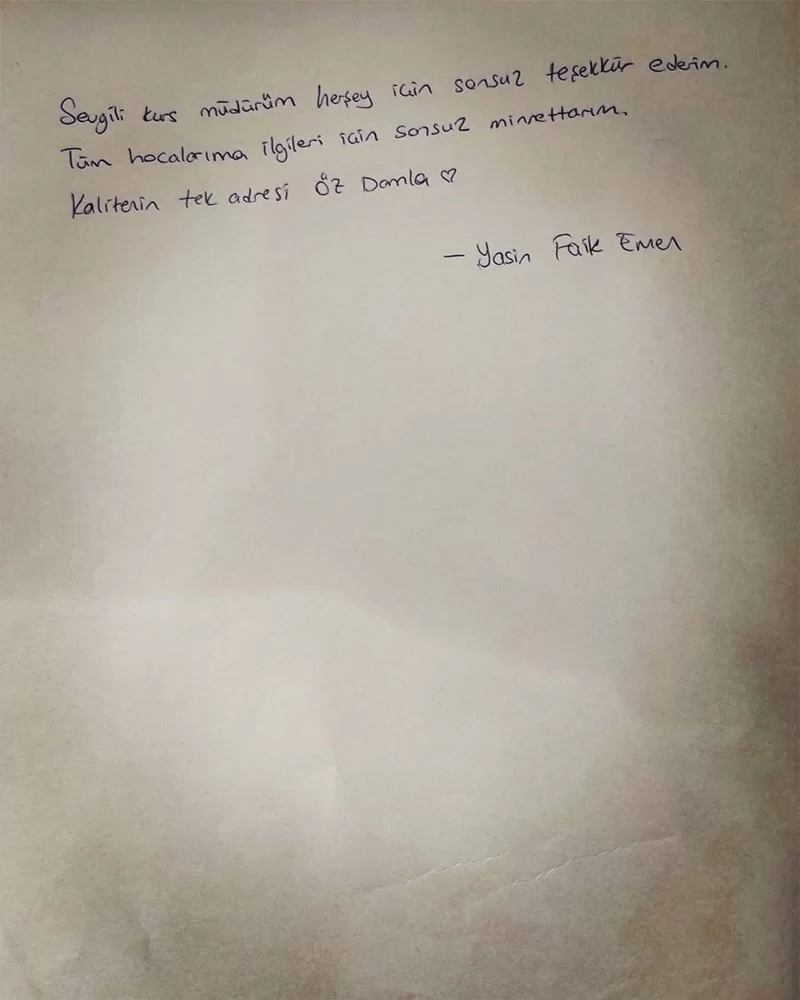 Sevgili kurs müdürüm herşey için sonsuz teşekkür ederim.
Tüm hocalarıma ilgileri için sonsuz minnettarım.
Kalitenin tek adresi Öz Damla ♡
— Yasin Faik Emen